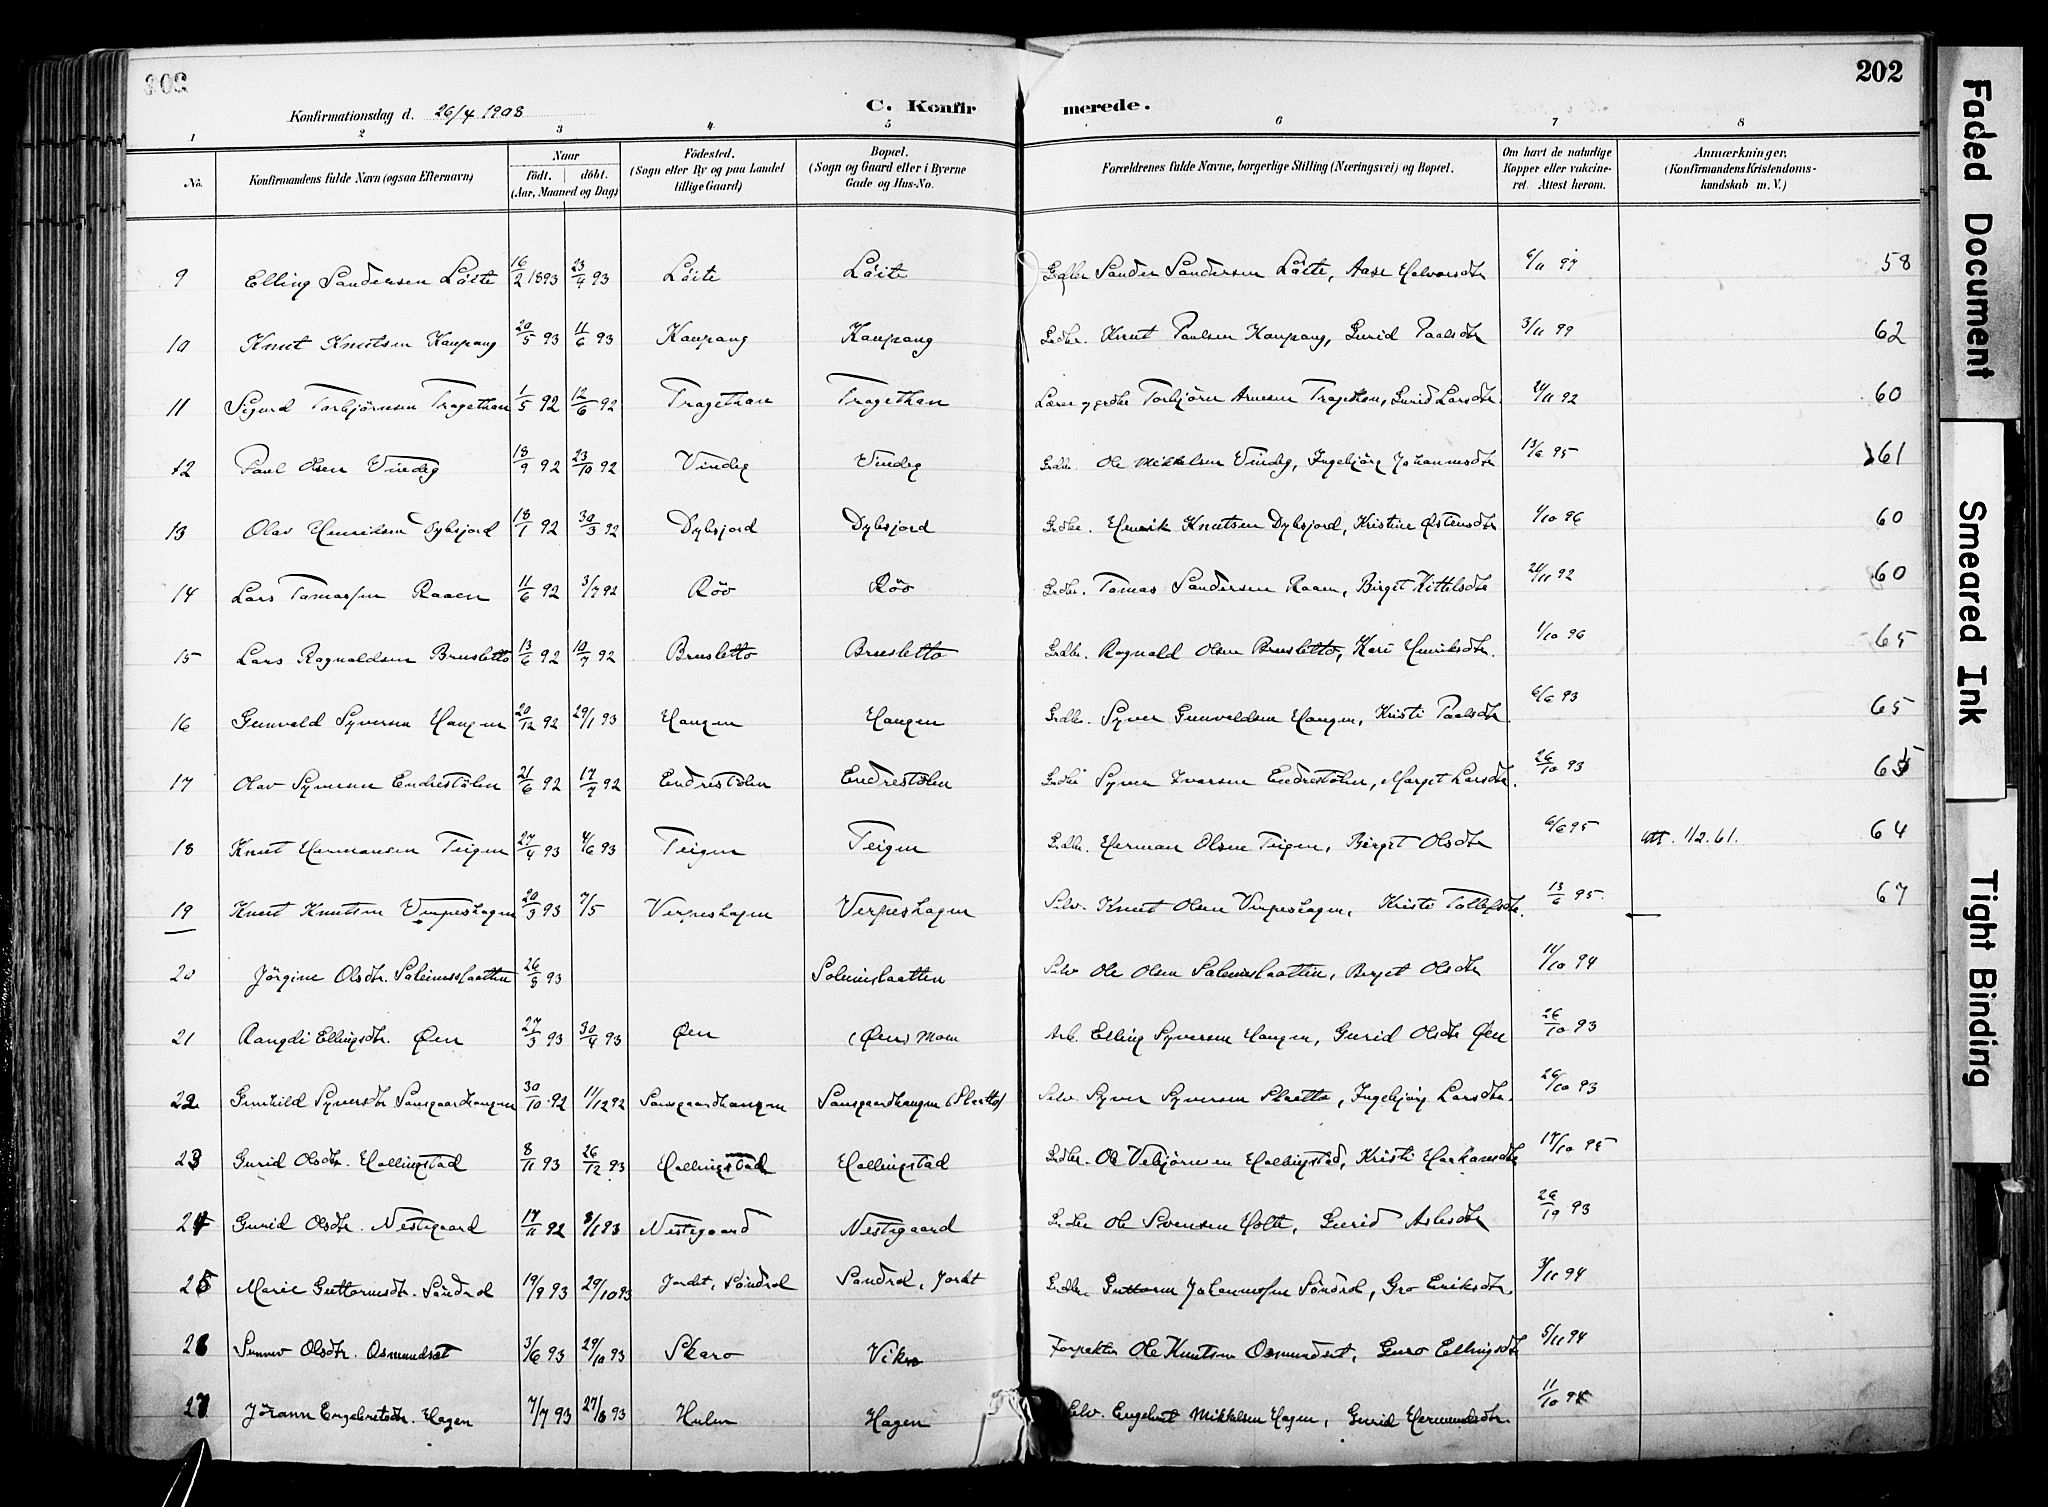 202
Konfirmationsdag d. 26/4 1908
C. Konfir merede.
1 2 3 4 5 6 7 8
No. Konfirmandens fulde Navn (ogsaa Efternavn) Naar født. døbt. (Aar, Maaned og Dag) Fødested. (Sogn eller By og paa Landet tillige Gaard) Bopæl. (Sogn og Gaard eller i Byerne Gade og Hus-No. Forældrenes fulde Navne, borgerlige Stilling (Næringsvei) og Bopæl. Om havt de naturlige Kopper eller vakcineret. Attest herom. Anmærkninger. (Konfirmandens Kristendomskundskab m. V.)
9 Elling Sandersen Löite 16/2 1893 23/4 93 Löite Löite Grdbr. Sander Sandersen Löite, Aase Halvorsdtr 6/11 97 58
10 Knut Knutsen Kaupang 20/5 93 11/6 93 Kaupang Kaupang Grdbr. Knut Paulsen Kaupang, Gurid Paalsdtr 3/11 99 62
11 Sigurd Torbjörnsen Tragethon 1/5 92 12/6 92 Tragethon Tragethon Lærer og grdbr Torbjörn Arnesen Tragethon, Gurid Larsdtr. 24/11 92 60
12 Paul Olsen Vindeg 18/9 92 23/10 92 Vindeg Vindeg Grdbr. Ole Mikkelsen Vindeg, Ingebjörg Johannesdtr 13/6 95 61
13 Olav Henriksen Dybsjord 18/1 92 30/3 92 Dybsjord Dybsjord Grdbr. Henrik Knutsen Dybsjord, Kristine Østensdtr 1/10 96 60
14 Lars Tomassen Raaen 11/6 92 3/7 92 Röo Röo Grdbr. Tomas Sandersen Raaen, Birget Kittelsdtr 24/11 92 60
15 Lars Ragnvaldsen Brusletto 13/6 92 10/7 92 Brusletto Brusletto Grdbr. Ragnvald Olsen Brusletto, Kari Henriksdtr. 1/10 96 65
16 Gunvald Syversen Haugen 20/12 92 29/1 93 Haugen Haugen Grdbr. Syver Gunvaldsen Haugen, Kristi Paalsdtr 6/6 93 65
17 Olav Syversen Endrestölen 21/6 92 17/7 92 Endrestölen Endrestölen Grdbr Syver Iversen Endrestölen, Marget Larsdtr. 26/10 93 65
18 Knut Hermansen Teigen 27/4 93 4/6 93 Teigen Teigen Grdbr. Herman Olsen Teigen, Birget Olsdtr 6/6 95 Att. 1/2. 61. 64
19 Knut Knutsen Verpeshagen 20/3 93 7/5 Verpeshagen Verpeshagen Selv. Knut Olsen Verpeshagen, Kristi Tollefsdtr. 13/6 95. 67
20 Jörgine Olsdtr. Soleimslaatten 26/8 93 Soleimslaatten Selv Ole Olsen Soleimslaatten, Birget Olsdtr 11/10 94
21 Rangdi Ellingsdtr. Øen 27/3 93 30/4 93 Øen (Øen) Moen Arb. Elling Syversen Haugen, Gurid Olsdtr Øen 26/10 93
22 Gunhild Syversdtr Sansgaardhaugen 30/10 92 11/12 92 Sansgaardhaugen Sansgaardhaugen (Sletto) Selv. Syver Syversen Sletto, Ingebjörg Larsdtr. 26/10 93
23 Gurid Olsdtr. Hallingstad 8/11 93 26/12 93 Hallingstad Hallingstad Grdbr. Ole Vebjörnsen Hallingstad, Kristi Haakonsdtr 17/10 95
24 Gurid Olsdtr. Nestegaard 17/11 92 8/1 93 Nestegaard Nestegaard Grdbr Ole Svensen Holte, Gurid Aslesdtr 26/10 93
25 Marie Guttormsdtr. Söndrol 19/9 93 29/10 93 Jordet, Söndrol Sandrol, Jordet Grdbr. Guttorm Johannessen Söndrol, Gro Eriksdtr. 3/11 94
26 Sunnev Olsdtr. Osmundset 3/6 93 29/10 93 Skaro Viken Forpakter Ole Knutsen Osmundset, Guro Ellingsdtr 5/11 94
27 Jörann Engebretsdtr. Hagen 7/7 93 27/8 93 Hulen Hagen Selv. Engebret Mikkelsen Hagen, Gurid Hermundsdtr. 11/10 94
Faded Document
Smeared Ink
Tight Binding